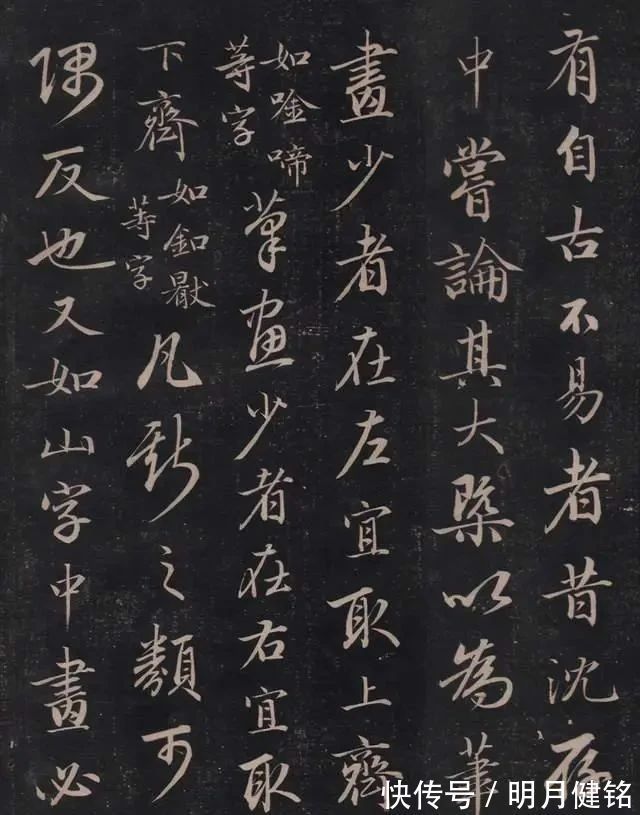 有自古不易者昔沈存
中嘗論其大槩以為筆
畫少者在左宜取上齊
如唫啼
等字
筆畫少者在右宜取
下齊
如釦㪚
等字
凡斯之類可
隅反也又如山字中畫必
快传号/明月健铭